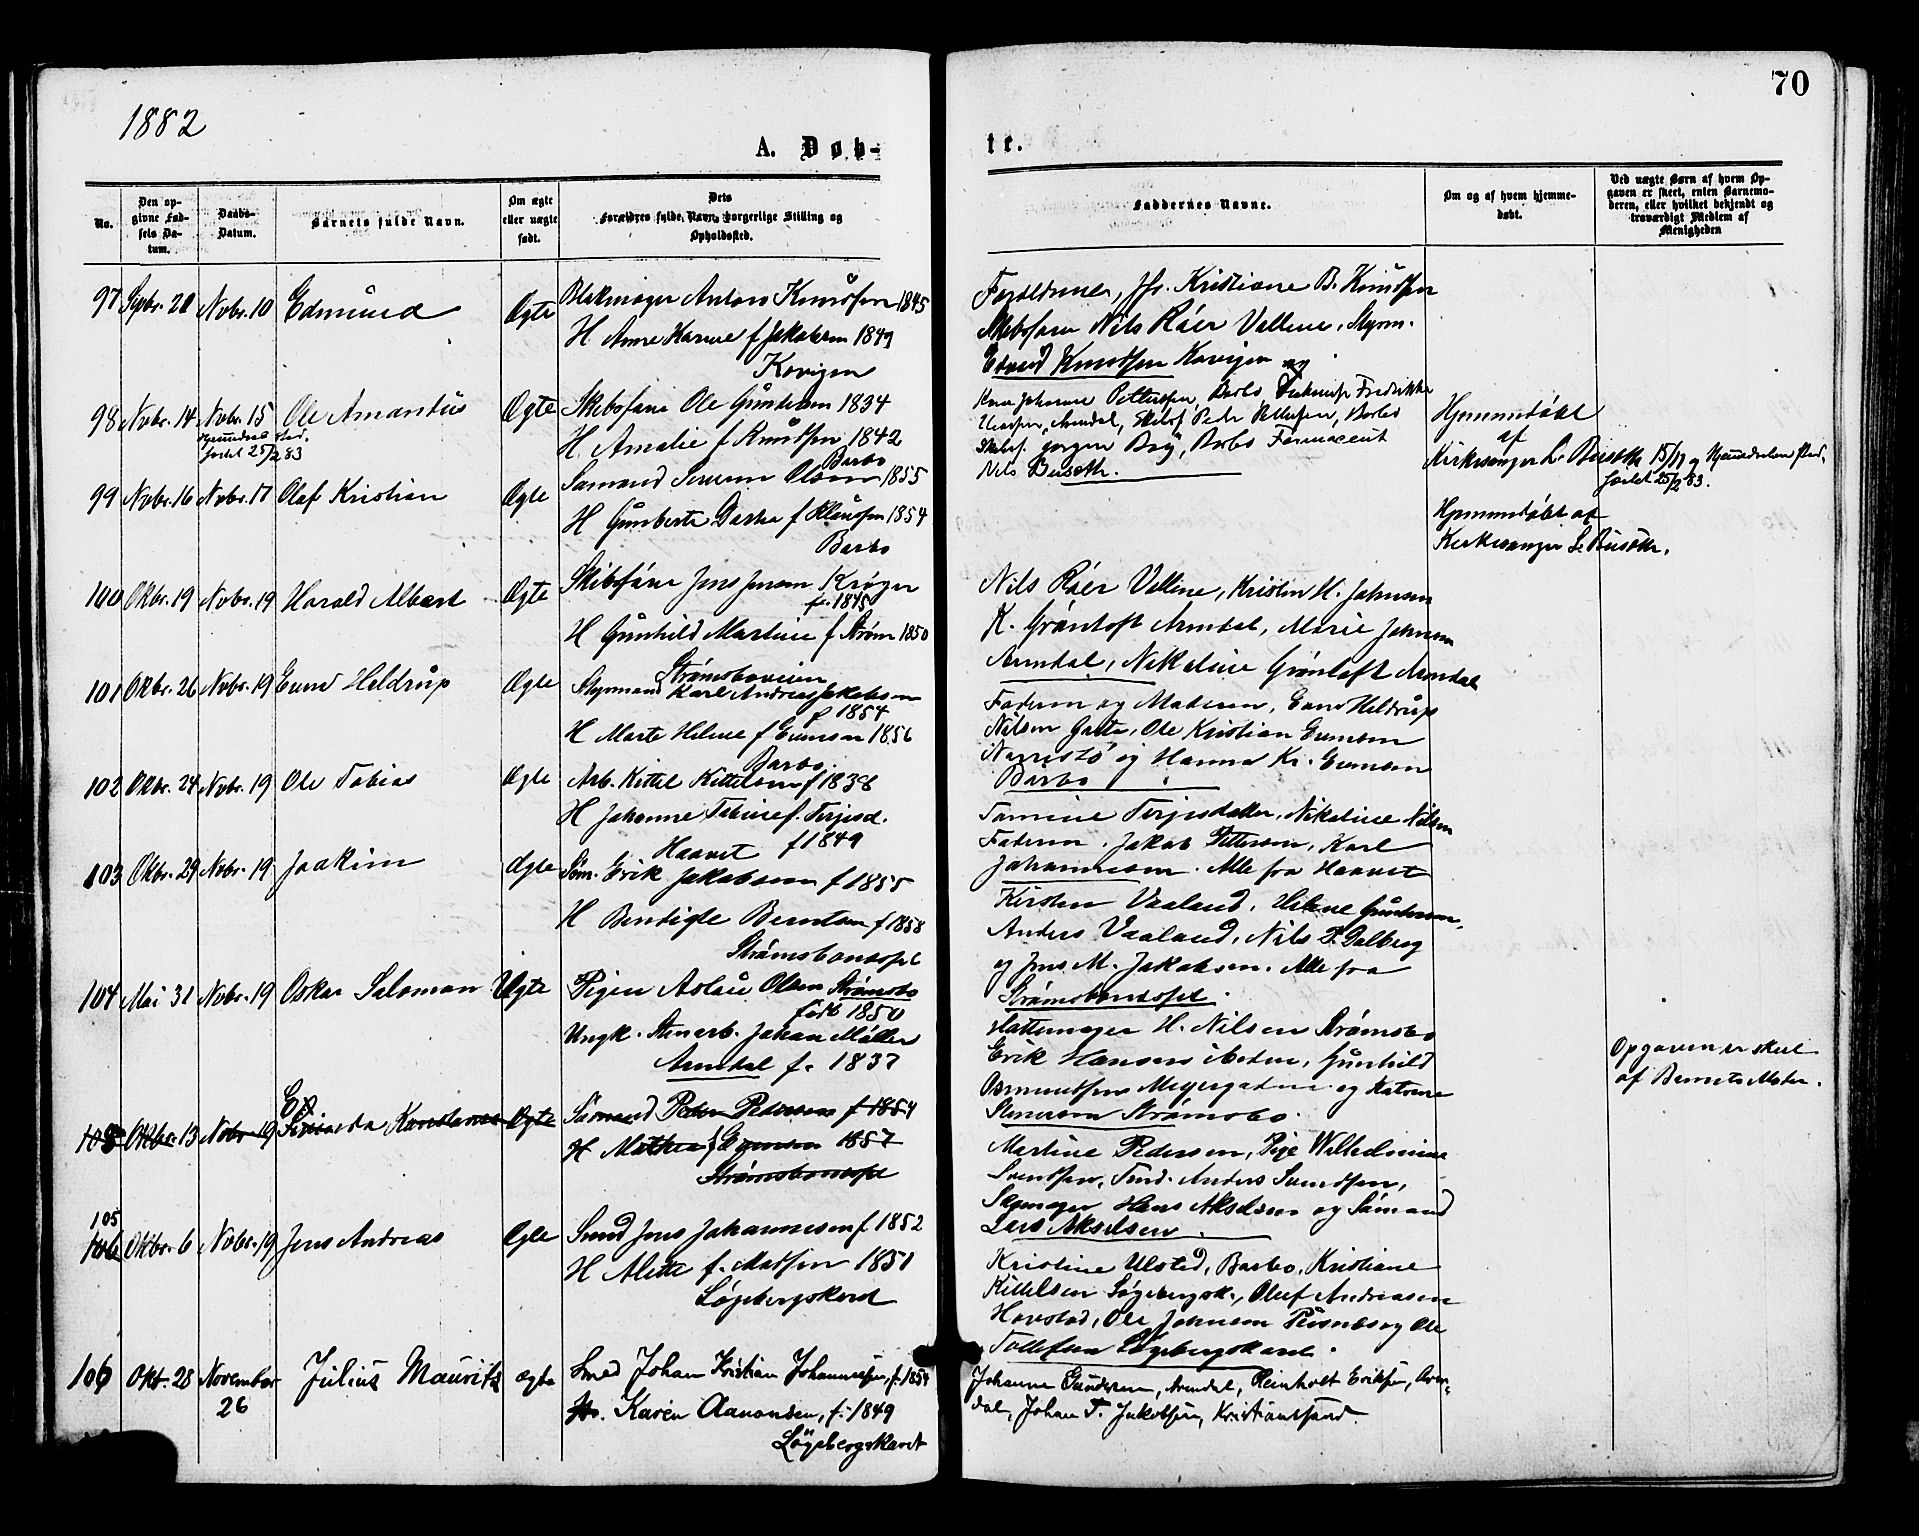 70
1882
A. Døb-
te.
No.
Den op-
givne Fød-
sels Da-
tum.
Daabs-
Datum.
Barnets fulde Navn.
Om ægte
eller uægte
født.
Dets
Forældres fulde Navn, borgerlige Stilling og
Opholdssted.
Faddernes Navne.
Om og af hvem hjemme-
døbt.
Ved uægte Børn af hvem Op-
gaven er skeet, enten Barnemo-
deren, eller hvilket bekjendt og
troværdigt Medlem af
Menigheden
97 Sepbr. 20 Nvbr. 10 Edmund Ægte Blikmager Anton Knudsen 1845
H. Anne Karine f Jakobsen 1849
Kovigen
Forældrene, Jfr. Kristiane B. Knudsen
Skibsfører Nils Róer Vellene, Styrm.
Edvard Knudsen Kovigen og
98 Nvbr. 14 Nvbr. 15 Ole Amandus Ægte Skibsfører Ole Gundersen 1834
25/2 83
H. Amalie f Knudsen 1842
Barbo
Johanne Pettersen, Barbo, Fredrikke
Arendal, Skibsf Peder Pettersen, Barbo
Skibsf. Jørgen Bøy, Barbo Farmaceut
Nils Busøth.
Hjemmedøbt
af
Kirkesanger L. Busøth 15/11 og
25/2 83.
99 Nvbr. 16 Nvbr. 17 Olaf Kristian Ægte Sømand Severin Olsen 1855
H Gunberte Dorthea f Klausen 1854
Barbo
Hjemmedøbt af
Kirkesanger L. Busøth.
100 Oktbr. 19 Nvbr. 19 Harald Albert Ægte Skibsfører Jens Jensen Krøger
f. 1845
H Gunhild Martine f Strøm 1850
Strømsboveien
Nils Róer Vellene, Kristen H. Johnsen
K. Gröntoft Arendal, Marie Johnsen
Arendal, Nikoline Gröntoft Arendal
101 Oktbr. 26 Nvbr. 19 Even Heldrup Ægte Styrmand Karl Andreas Jakobsen
f 1854
H Marte Helene f Evensen 1856
Barbo.
Faderen og Moderen, Even Heldrup
Nilsen Ole Kristian Evensen
og Hanna Kr. Evensen
Barbo
102 Oktbr. 24 Nvbr. 19 Ole Tobias Ægte Arb. Kittel Kittelsen f 1838
H Johanne Tobine f. Terjesd.
Haavet f 1849
Tomine Terjesdatter, Nikoline Nilsen
Faderen, Jakob Pettersen, Karl
Johannesen. Alle fra Haavet
103 Oktbr. 29 Nvbr. 19 Joakim Ægte Søm. Erik Jakobsen f 1855
H Bendigte Berntsen f 1858
Strømsbo
Kirsten Vaaland, Helene Gundersen,
Anders Vaaland, Nils T. Dalberg
og Jens M. Jakobsen. Alle fra
104 Mai 31 Nvbr. 19 Oskar Salomon Uægte Pigen Aslau Olsen Strømsbo
født 1850
Ungk. Stenarb. Johan Møller
Arendal f. 1837
Hattemager H. Nilsen Strømsbo
Erik Hansen Gunhild
Osmundsen Meyergaden og Katrine
Stenersen Strømsbo.
Opgaven er skeet
af Barnets Moder.
105 Oktbr. 13 Nvbr. 19 Konstanse Ægte Sømand Peder Pedersen f 1854
H Mathea f Evensen 1857
Martine Pedersen, Pige Wilhelmine
Svendsen, Anders Svendsen,
Hans Akselsen og Sømand
Lars Akselsen
105
106 Oktbr. 6 Nvbr. 19 Jens Andreas Ægte Smed Jens Johannesen f. 1852
H Alette f. Madsen 1851
Løgebergskaret
Kristine Ulsted, Barbo, Kristiane
Kittelsen Løgebergsk., Oluf Andreasen
Havstad, Ole Johnsen og Ole
Tollefsen Løgebergskaret.
106 Okt. 28 November
26
Julius Mauritz ægte Smed Johan Kristian Johannessen, f. 1854
Karen Aanonsen, f. 1849
Løgebergskaret
Johanne Gundersen, Arendal, Reinholt Eriksen, Aren-
dal, Johan T. Jakobsen, Kristianssand.